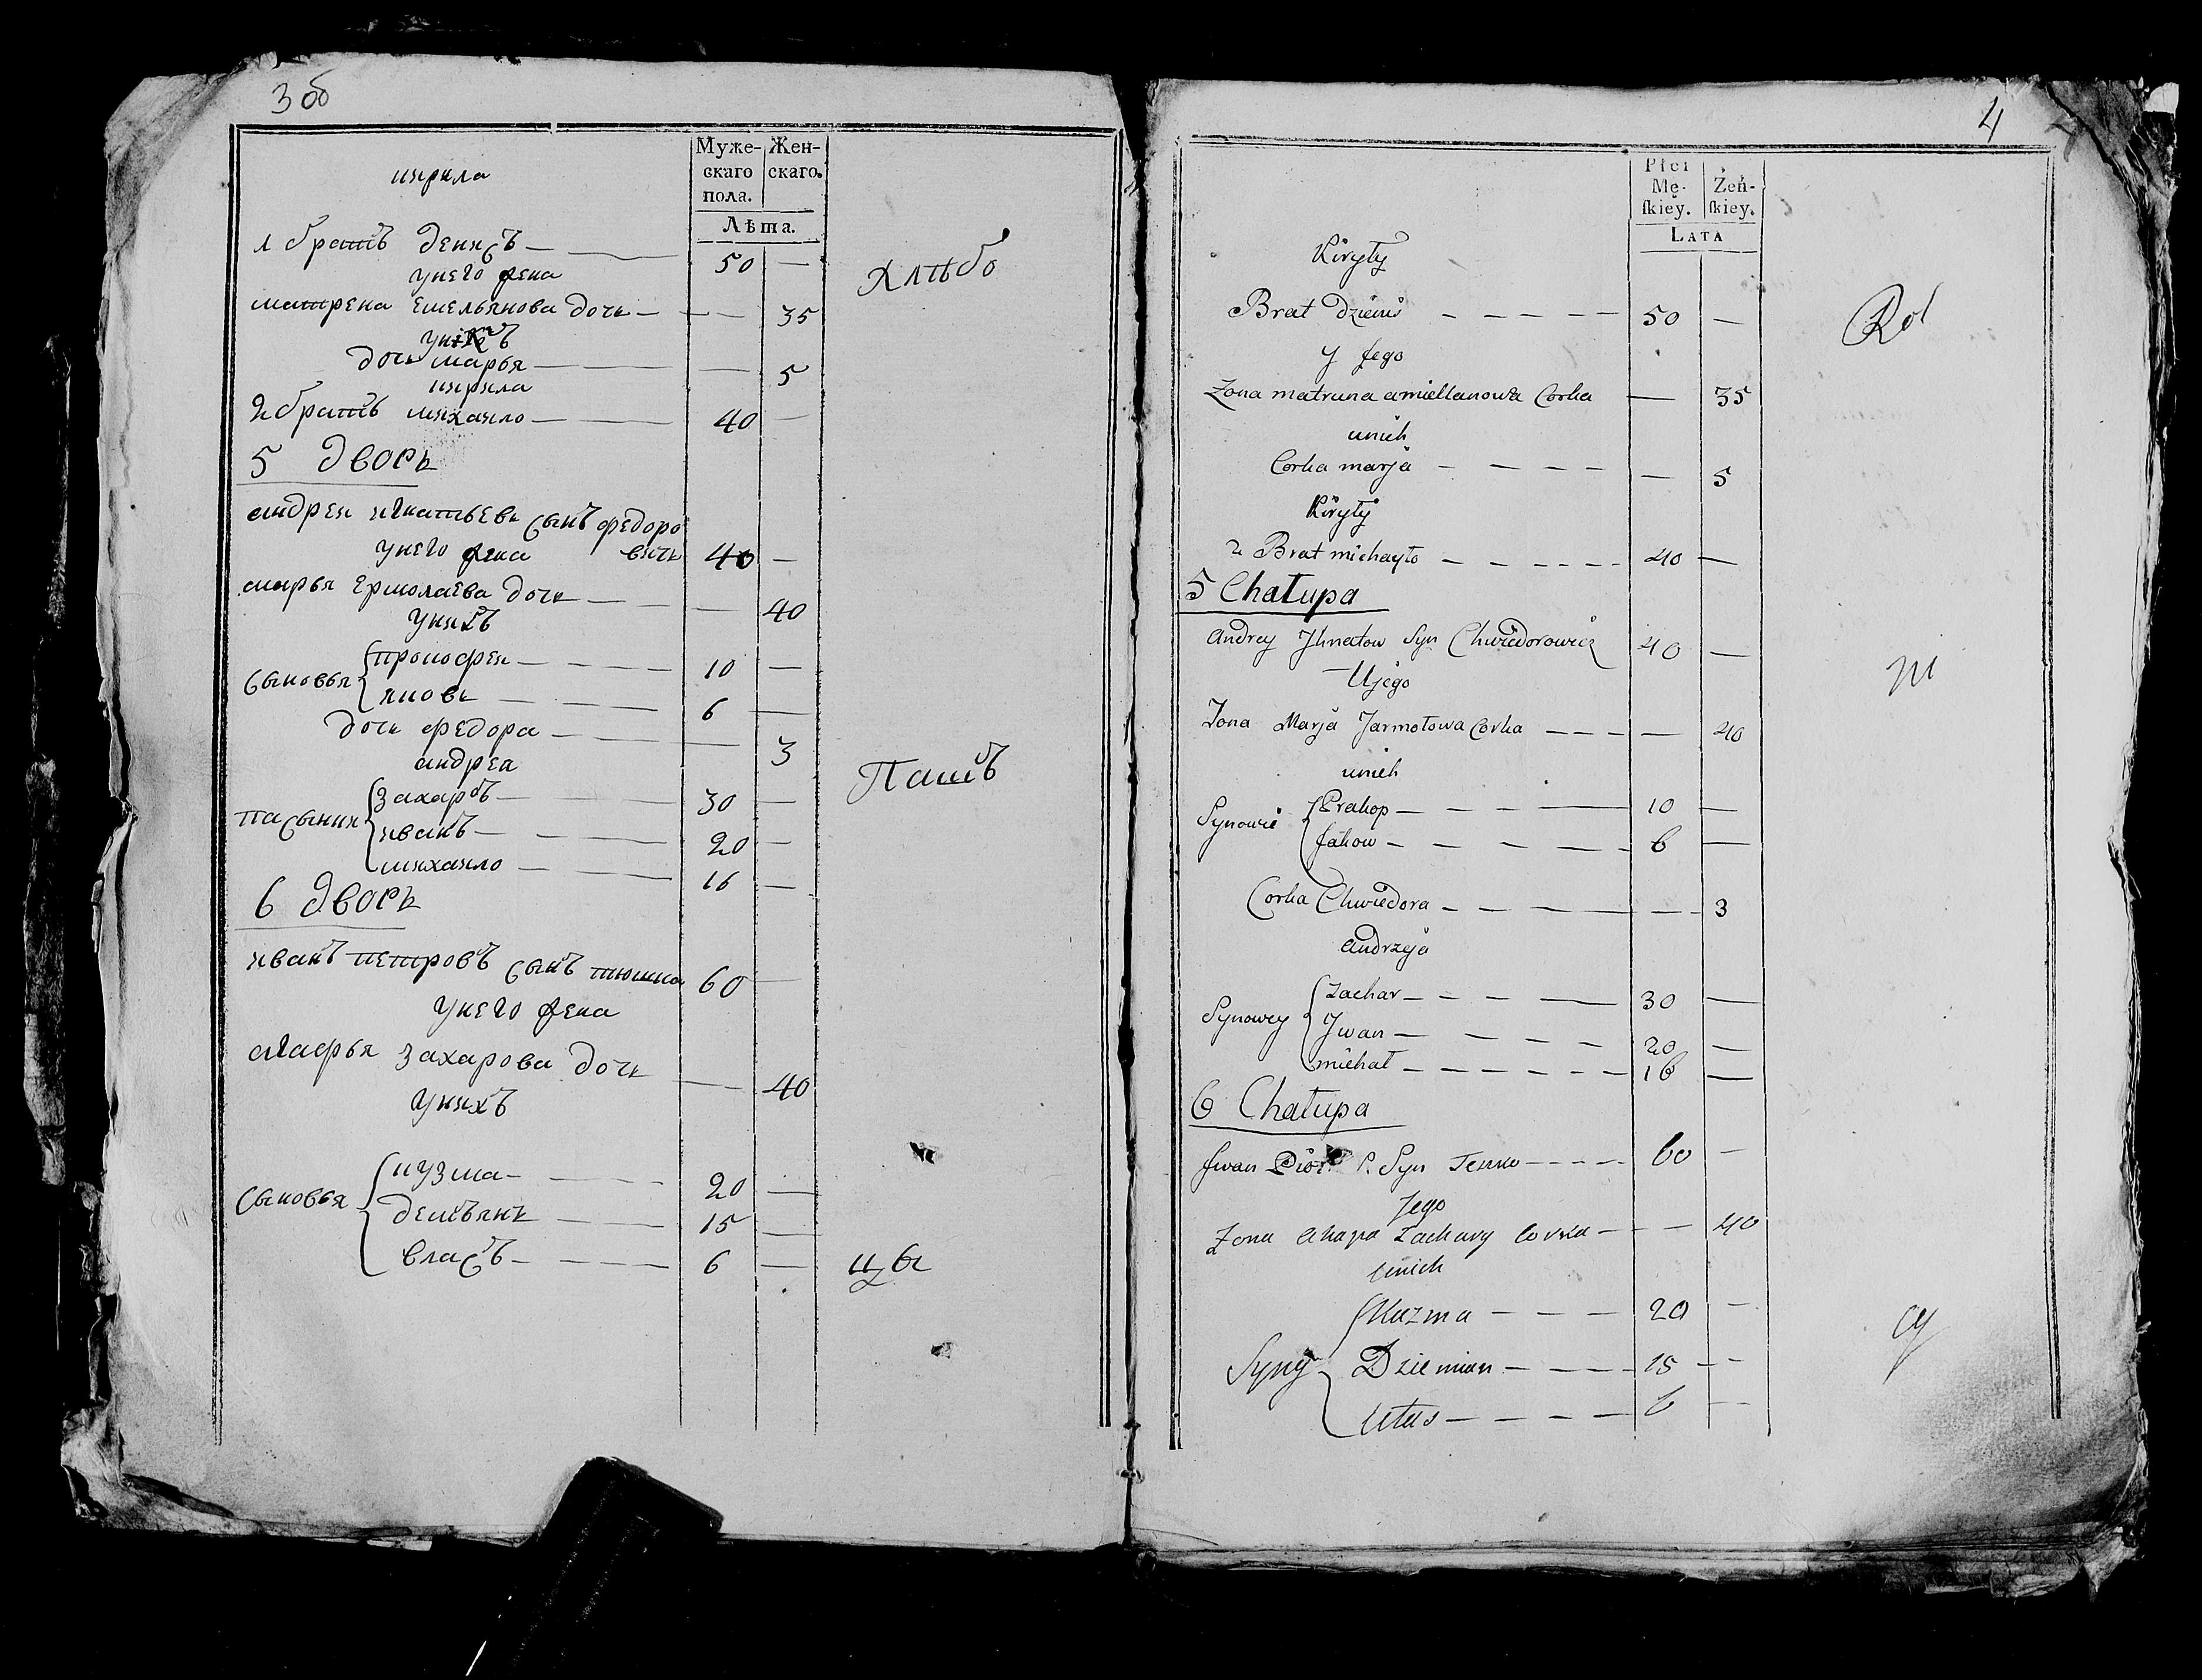 3 об
Муже-
скаго
пола.
Жен-
скаго.
Лѣта.
кирила
1 братъ денисъ — 50 —
унего жена
матрена Емельянова дочь — — 35
унихъ
дочь марья — — 5
кирила
2 братъ михаило — 40 —
5 дворъ
андреи игнатьевъ сынъ федоро
вичь 40 —
унего жена
марья Ермолаева дочь — — 40
унихъ
сыновья
прокофеи — 10 —
яковъ — 6 —
дочь федора — — 3
андрея
пасынки
захаръ — 30 —
иванъ — 20 —
михаило — 16 —
6 дворъ
иванъ петровъ сынъ тюшка 60 —
унего жена
агафья захарова дочь — — 40
унихъ
сыновья
кузма — 20 —
демьянъ — 15 —
власъ — 6 —
Хлѣбо
Пашъ
цы
4
Płci
Mę-
skiey.
Żeń-
skiey.
LATA
Kiryły
Brat Dzienis — 50 —
y jego
Zona matruna amiellanowa Corka — 35
unich
Corka marja — — 5
Kiryły
2 Brat michayło — 40 —
5 Chałupa
Andrey Jhnatow Syn Chwiedorowicz 40 —
Ujego
Zona Marja Jarmołowa Corka — — 40
unich
Synowie
Prakop — 10 —
Jakow — 6 —
Corka Chwiedora — — 3
Andrzeja
Synowcy
Zachar — 30 —
Jwan — 20 —
michał — 16 —
6 Chałupa
Jwan Syn 60 —
Jego
Zona Ahapa Zachary Corka — — 40
Unich
Syny
Kuzma — 20 —
Dziemian — 15 —
Ułas — 6 —
Rol
ni
cy